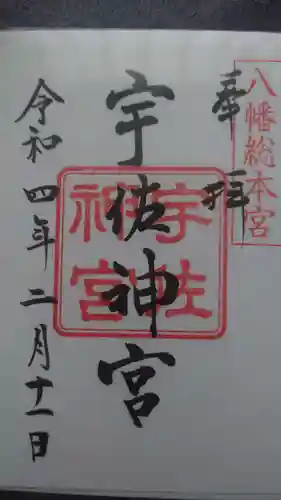 八幡総本宮
奉拝
宇佐神宮
宇佐
神宮
令和四年二月十一日